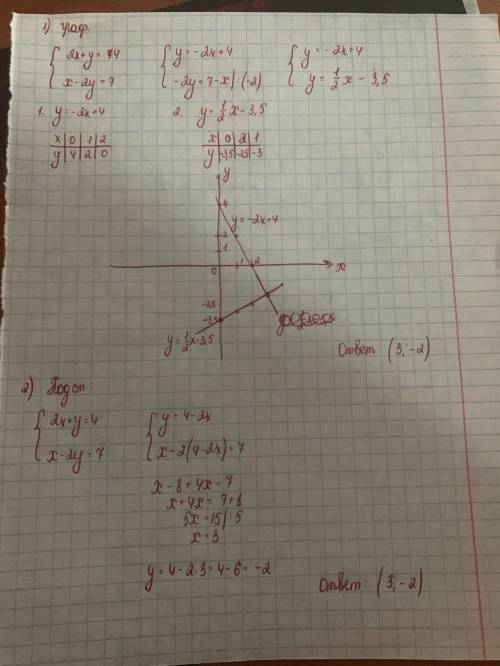 1) граф.
{ 2x+y = 4   { y = -2x+4   { y = -2x+4
{ x-2y = 7   { -2y = 7-x |:(-2)   { y = 1/2 x - 3,5
1. y = -2x+4   2. y = 1/2 x - 3,5
x | 0 | 1 | 2   x | 0 | 2 | 1
y | 4 | 2 | 0   y | -3,5 | -2,5 | -3
y
4
y = -2x+4
2
1
0 1 2 x
-2,5
-3,5
y = 1/2 x - 3,5
Ответ (3; -2)
2) Подст:
{ 2x+y = 4   { y = 4-2x
{ x-2y = 7   { x-2(4-2x) = 7
x-8+4x = 7
x+4x = 7+8
5x = 15 |:5
x = 3
y = 4-2·3 = 4-6 = -2
Ответ: (3; -2)